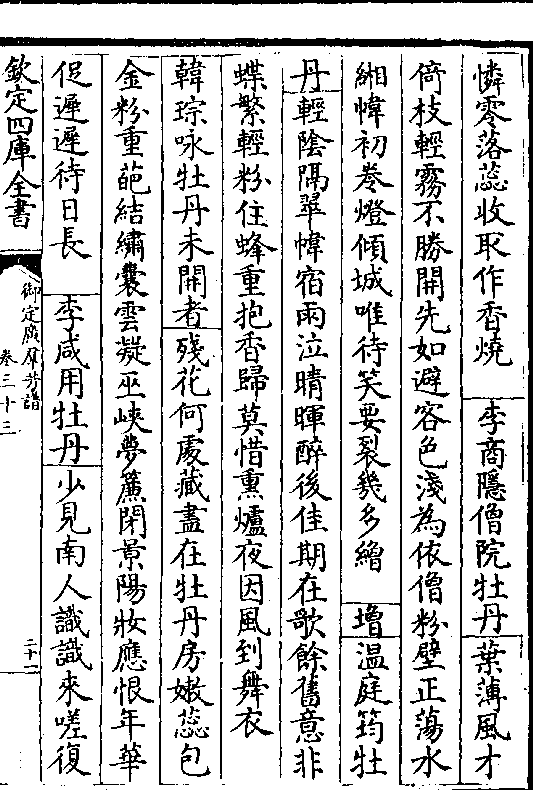 憐零落蕊收取作香燒　李商隱僧院牡丹葉薄風才
倚枝輕霧不勝開先如避客色淺為依僧粉壁正蕩水
緗幃初卷燈傾城唯待笑要裂幾多繒　增溫庭筠牡
丹輕陰隔翠幃宿雨泣晴暉醉後佳期在歌餘舊意非
蝶繁輕粉住蜂重抱香歸莫惜熏爐夜因風到舞衣
韓琮咏牡丹未開者殘花何處藏盡在牡丹房嫩蕊包
金粉重葩結繡囊雲凝巫峽夢簾閉景陽妝應恨年華
促遲遲待日長　李咸用牡丹少見南人識識來嗟復
欽定四庫全書
御定廣羣芳譜
卷三十三
二十一